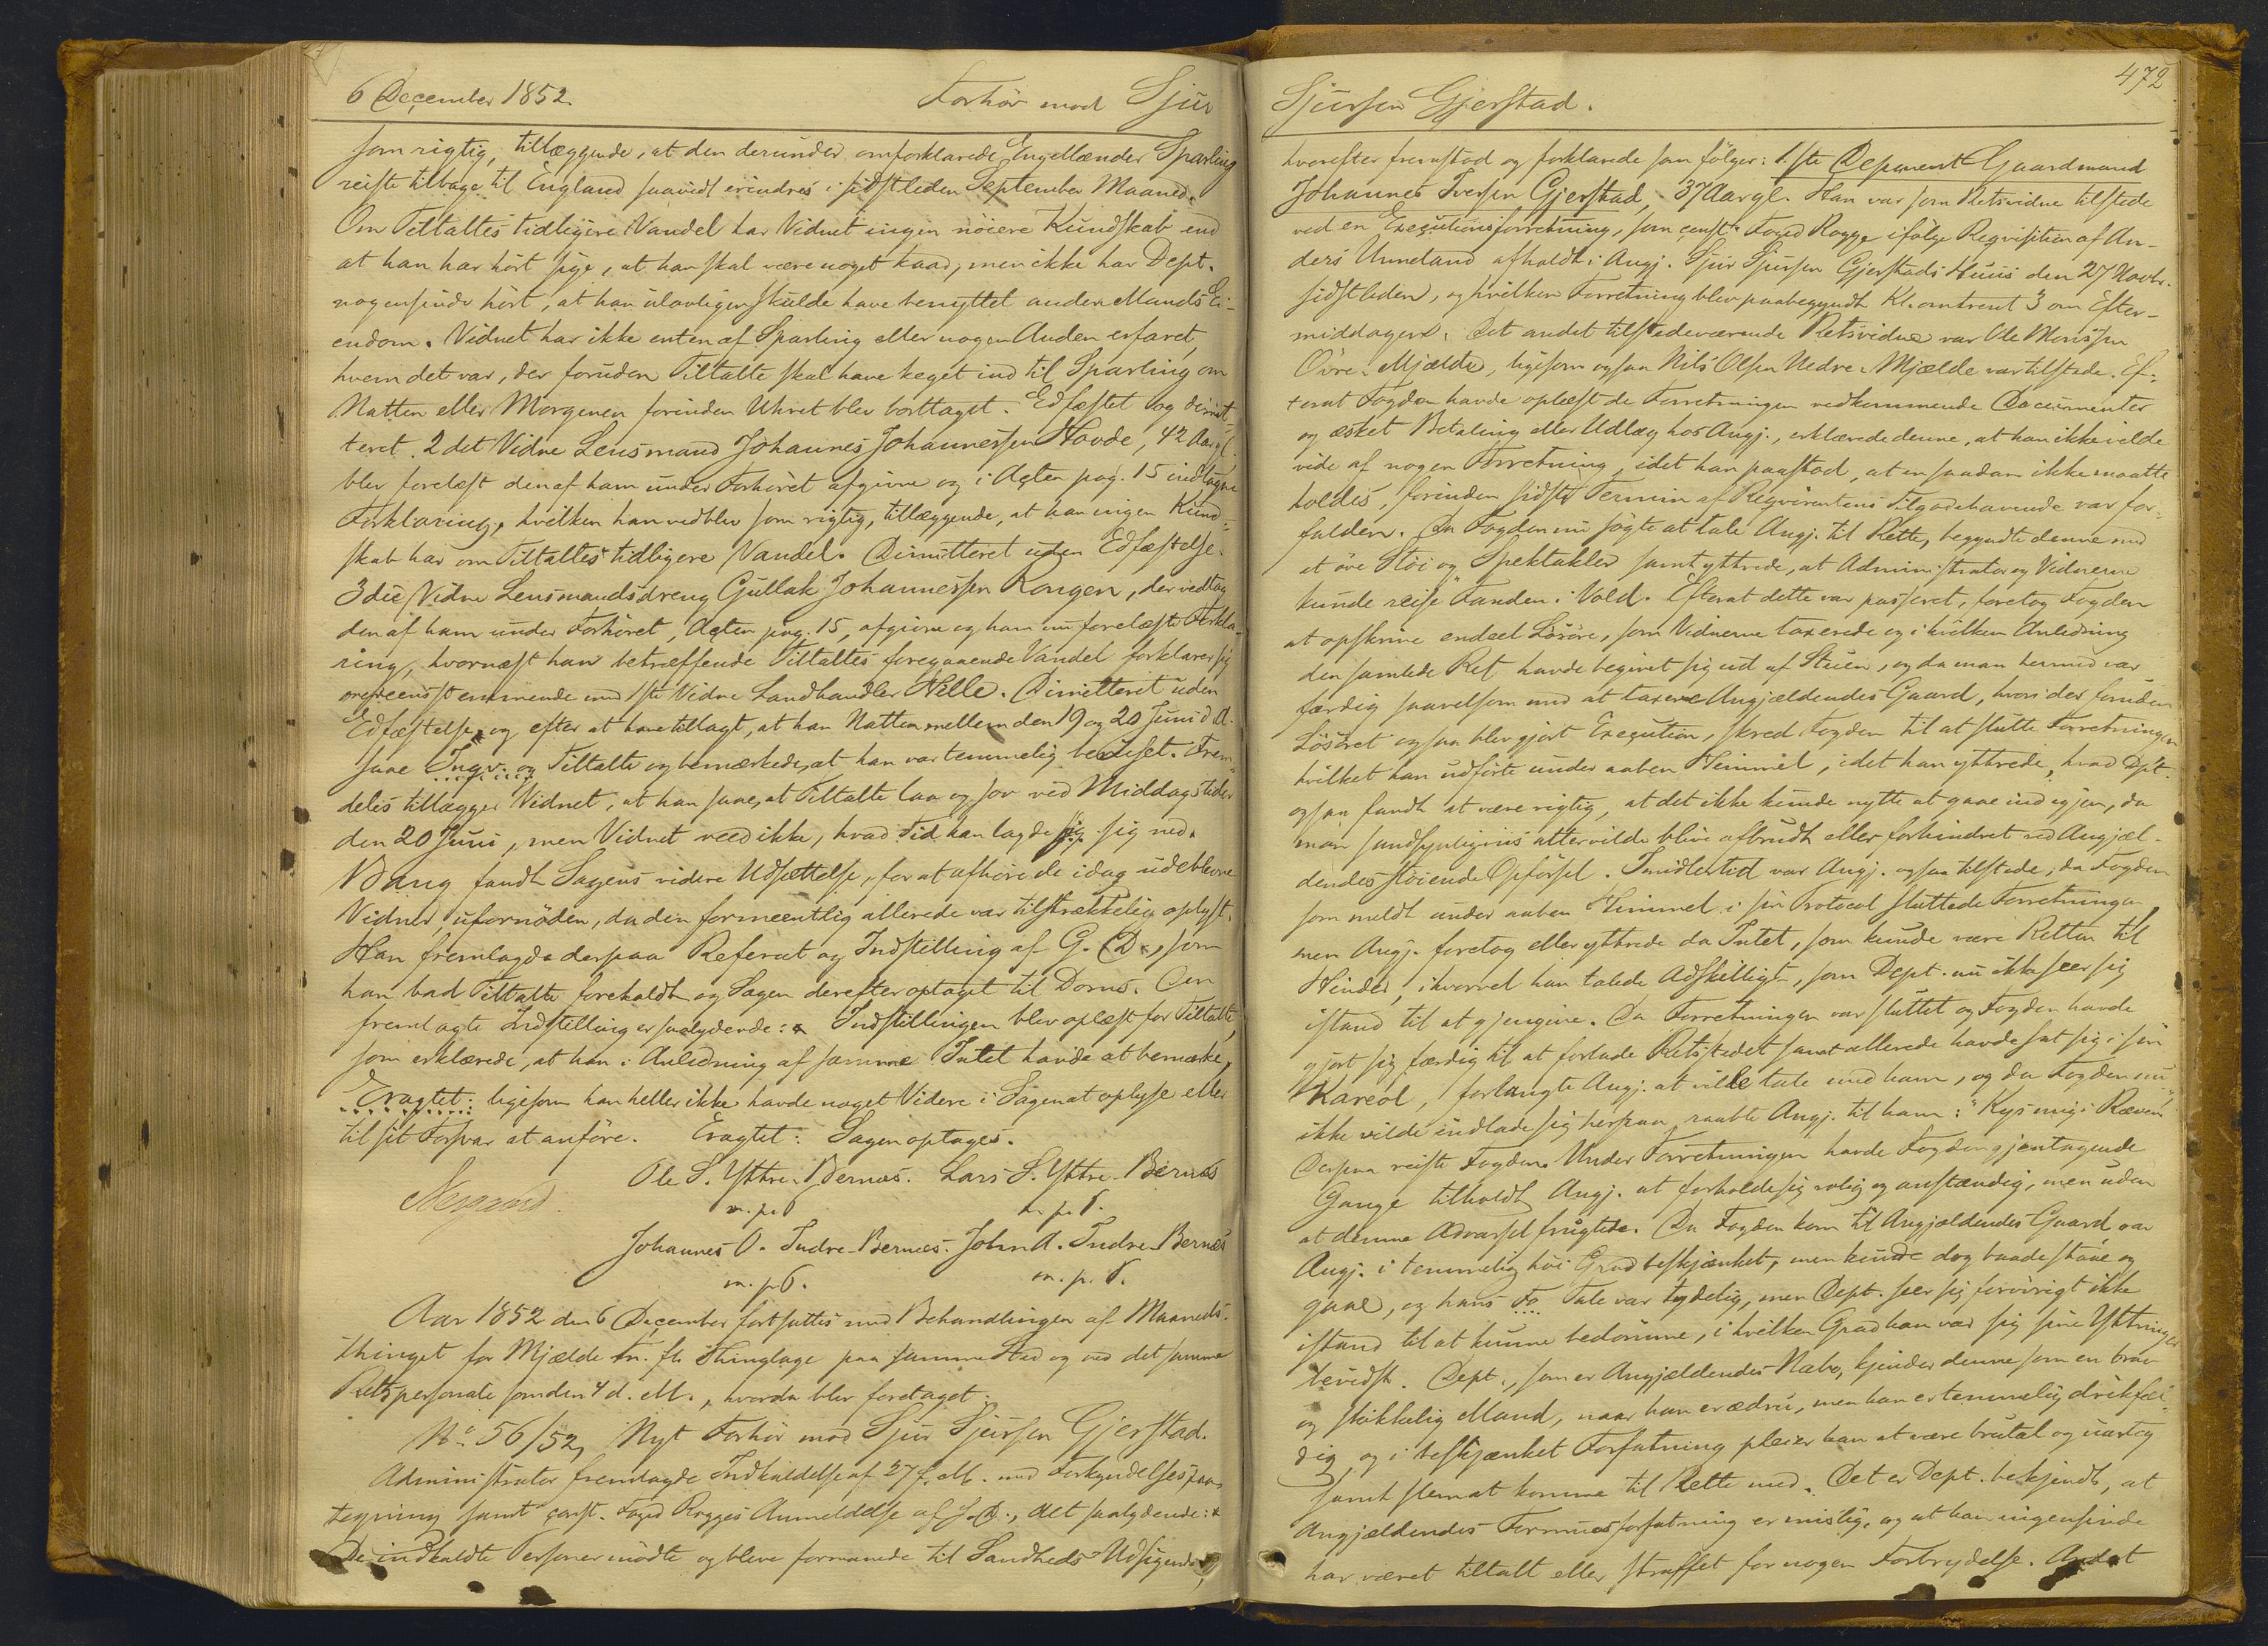 6 December 1852.
Forhör mod Sjur
som rigtig, tillæggende, at den derunder omforklarede Engellænder Sparling
reiste tilbage til England saavidt erindres i sidstleden September Maaned.
Om Tiltaltes tidligere Vandel har Vidnet ingen nöiere Kundskab end
at han har hört sige, at han skal være noget kaad, men ikke har Dept.
nogensinde hört, at han ulovligen skulde have benyttet anden Mands Ei-
endom. Vidnet har ikke enten af Sparling eller nogen Anden erfaret,
hvem det var, der foruden Tiltalte skal have keget ind til Sparling om
Natten eller Morgenen forinden Uhret blev borttaget. Edfæstet og dimit-
teret. 2det Vidne Lensmand Johannes Johannessen Hovde, 42 Aar gl.
blev forelæst den af ham under Forhöret afgivne og i Acten pag. 15 indtagne
Forklaring, hvilken han vedblev som rigtig, tillæggende, at han ingen Kund-
skab har om Tiltaltes tidligere Vandel. Dimitteret uden Edfæstelse.
3die Vidne Lensmandsdreng Gullak Johannessen Rongen, der vedtog
den af ham under Forhöret, Acten pag. 15, afgivne og ham nu forelæste Forkla-
ring, hvornæst han betræffende Tiltaltes foregaaende Vandel forklarer sig
overeensstemmende med 1ste Vidne Landhandler Nille. Dimitteret uden
Edfæstelse, og efter at have tillagt, at han Natten mellem den 19 og 20 Juni d. A.
saae Ingv. og Tiltalte og bemærkede, at han var temmelig beruset. Frem-
deles tillægger Vidnet, at han saae, at Tiltalte laa og sov ved Middagstider
den 20 Juni, men Vidnet veed ikke, hvad Tid han lagde sig sig ned.
Bang fandt Sagens videre Udsættelse, for at afhöre de idag udeblevne
Vidner, ufornöden, da den formeentlig allerede var tilstrækkelig oplyst.
Han fremlagde derpaa Referat og Indstilling af G. D., som
han bad Tiltalte foreholdt og Sagen derefter optaget til Doms. Den
fremlagte Indstilling er saalydende: Indstillingen blev oplæst for Tiltalte,
som erklærede, at han i Anledning af samme Intet havde at bemærke,
Eragtet: ligesom han heller ikke havde noget Videre i Sagen at oplyse eller
til sit Forsvar at anföre. Eragtet: Sagen optages.
Ole S. Yttre-Bernæs. Lars S. Yttre-Bernæs
Nergaard. m. p. P. m. p. P.
Johannes O. Indre-Bernæs. John A. Indre-Bernæs
m. p. P. m. p. P.
Aar 1852 den 6 December fortsattes med Behandlingen af Maaneds-
thinget for Mjælde m. fl. Thinglage paa samme Sted og ved det samme
Retspersonale som den 4 d. M., hvorda blev foretaget:
No 56/52, Nyt Forhör mod Sjur Sjursen Gjerstad.
Administrator fremlagde Indkaldelse af 27 f. M. med Forkyndelsespaa-
tegning samt const. Foged Rogges Anmeldelse af s. D., Alt saalydende:
De indkaldte Personer mödte og bleve formanede til Sandheds Udsigende,
Sjursen Gjerstad.
472
hvorefter fremstod og forklarede som fölger: 1ste Deponent Gaardmand
Johannes Iversen Gjerstad, 37 Aar gl. Han var som Retsvidne tilstede
ved en Executionsforretning, som const. Foged Rogge ifölge Reqvisition af An-
ders Unneland afholdt i Angj. Sjur Sjursen Gjerstads Huus den 27 Novbr.
sidstleden, og hvilken Forretning blev paabegyndt Kl. omtrent 3 om Efter-
middagen. Det andet tilstedeværende Retsvidne var Ole Monssen
Övre-Mjælde, ligesom ogsaa Nils Olsen Nedre-Mjælde var tilstede. Ef-
terat Fogden havde oplæst de Forretningen vedkommende Documenter
og æsket Betaling eller Udlæg hos Angj., erklærede denne, at han ikke vilde
vide af nogen Forretning, idet han paastod, at en saadan ikke maatte
holdes, forinden sidste Termin af Reqvirentens Tilgodehavende var for-
falden. Da Fogden nu sögte at tale Angj. til Rette, begyndte denne med
at öve Stöi og Spektakler samt yttrede, at Administrator og Vidnerne
kunde reise Fanden i Vold. Efterat dette var passeret, foretog Fogden
at opskrive endeel Lösöre, som Vidnerne taxerede og i hvilken Anledning
den samlede Ret havde begivet sig ud af Stuen, og da man hermed var
færdig saavelsom med at taxere Angjældendes Gaard, hvori der foruden
Lösöret ogsaa blev gjort Execution, skred Fogden til at slutte Forretningen
hvilket han udförte under aaben Himmel, idet han yttrede, hvad Dept.
ogsaa fandt at være rigtig, at det ikke kunde nytte at gaae ind igjen, da
man sandsynligviis atter vilde blive afbrudt eller forhindret ved Angjæl-
dendes stöiende Opförsel. Imidlertid var Angj. ogsaa tilstede, da Fogden
som meldt under aaben Himmel i sin Protocol sluttede Forretningen,
men Angj. foretog eller yttrede da Intet, som kunde være Retten til
Hinder, ihvorvel han talede Adskilligt, som Dept. nu ikke seer sig
istand til at gjengive. Da Forretningen var sluttet og Fogden havde
gjort sig færdig til at forlade Retsstedet samt allerede havde sat sig i sin
Kareol, forlangte Angj. at ville tale med ham, og da Fogden nu
ikke vilde indlade sig herpaa, raabte Angj. til ham: "Kys mig i Ræven".
Derpaa reiste Fogden. Under Forretningen havde Fogden gjentagende
Gange tilholdt Angj. at forholde sig rolig og anstændig, men uden
at denne Advarsel frugtede. Da Fogden kom til Angjældendes Gaard, var
Angj. i temmelig höi Grad beskjænket, men kunde dog baade staae og
gaae, og hans Fo Tale var tydelig, men Dept. seer sig forövrigt ikke
istand til at kunne bedömme, i hvilken Grad han var sig sine Yttringer
bevidst. Dept., som er Angjældendes Nabo, kjender denne som en brav
og skikkelig Mand, naar han er ædru, men han er temmelig drikfæl-
dig, og i beskjænket Forfatning pleier han at være brutal og uartig
samt slem at komme til Rette med. Det er Dept. bekjendt, at
Angjældendes Formuesforfatning er mislig, og at han ingensinde
har været tiltalt eller straffet for nogen Forbrydelse. Andet